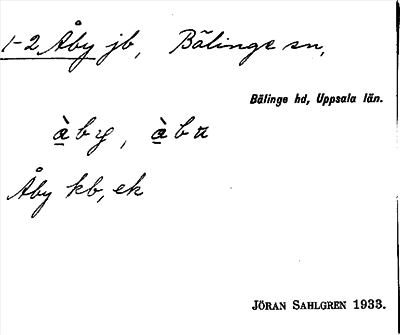 1-2 Åby jb, Bälinge sn,
Bälinge hd, Uppsala län.
Åby kb, ek
JÖRAN SAHLGREN 1933.